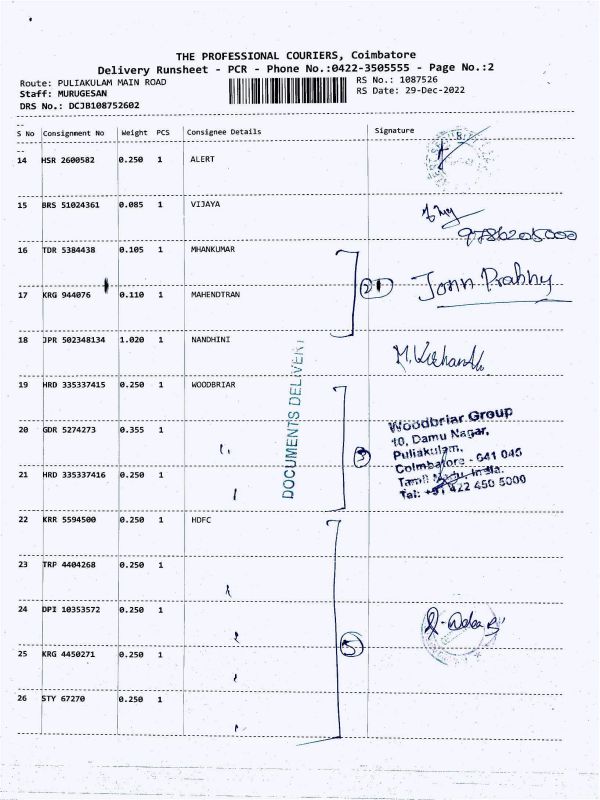 THE PROFESSIONAL COURIERS, Coimbatore
Delivery Runsheet - PCR - Phone No.:0422-3505555 - Page No.:2
Route: PULIAKULAM MAIN ROAD
RS No.: 1087526
Staff: MURUGESAN
RS Date: 29-Dec-2022
DRS No.: DCJB108752602
S No Consignment No Weight PCS Consignee Details Signature
14 HSR 2600582 0.250 1 ALERT
15 BRS 51024361 0.085 1 VIJAYA
9786205000
16 TDR 5384438 0.105 1 MHANKUMAR
2 John Prabhu
17 KRG 944076 0.110 1 MAHENDTRAN
18 JPR 502348134 1.020 1 NANDHINI
DOCUMENTS DELIVERY
19 HRD 335337415 0.250 1 WOODBRIAR
20 GDR 5274273 0.355 1
3
Woodbriar Group
10, Damu Nagar,
Puliakulam,
Coimbatore - 641 045
Tamil Nadu, India.
Tel: +91 422 450 5000
21 HRD 335337416 0.250 1
22 KRR 5594500 0.250 1 HDFC
23 TRP 4404268 0.250 1
24 DPI 10353572 0.250 1
5
25 KRG 4450271 0.250 1
26 STY 67270 0.250 1